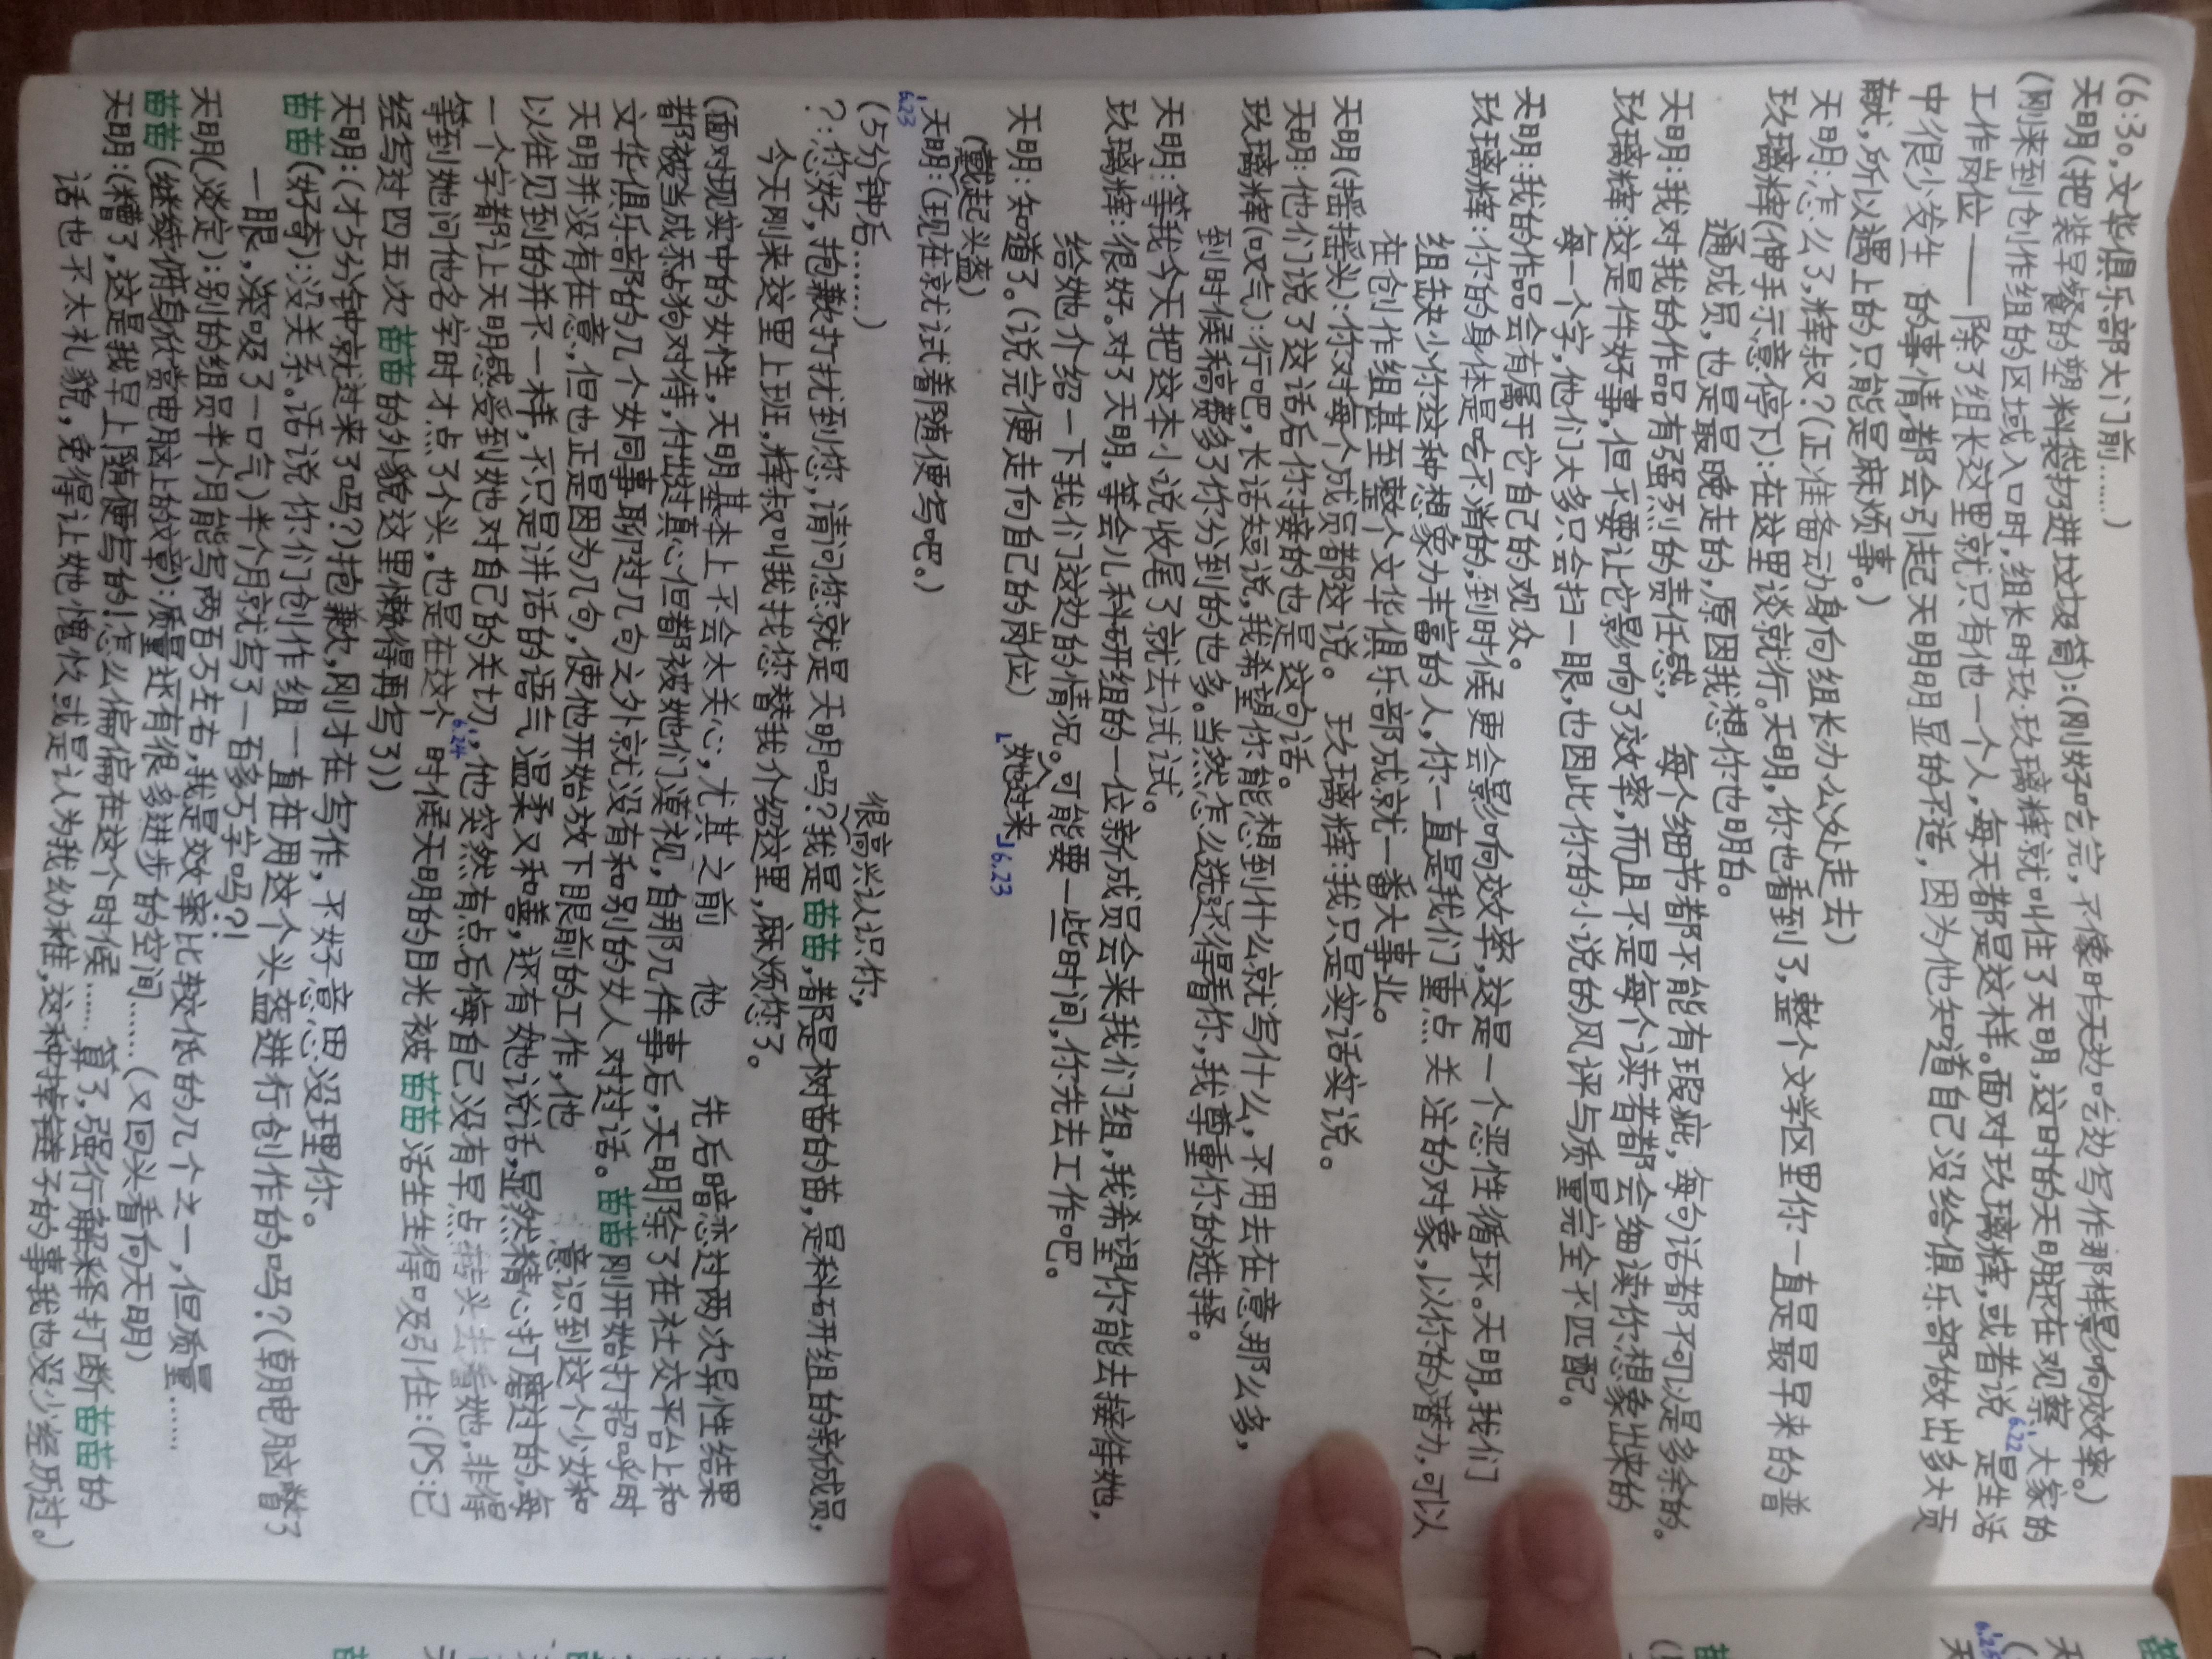 (6:30,文华俱乐部大门前……)
天明(把装早餐的塑料袋扔进垃圾筒):(刚好吃完,不像昨天边吃边写作那样影响效率。)
(刚来到创作组的区域入口时,组长时玖·玖璃辉就叫住了天明,这时的天明还在观察大家的
6.22
工作岗位——除了组长这里就只有他一个人,每天都是这样。面对玖璃辉,或者说 是生活
中很少发生 的事情,都会引起天明明显的不适,因为他知道自己没给俱乐部做出多大贡
献,所以遇上的只能是麻烦事。)
天明:怎么了,辉叔?(正准备动身向组长办公处走去)
玖璃辉(伸手示意停下):在这里谈就行。天明,你也看到了,整个文学区里你一直是最早来的普
通成员,也是最晚走的,原因我想你也明白。
天明:我对我的作品有强烈的责任感, 每个细节都不能有瑕疵,每句话都不可以是多余的。
玖璃辉:这是件好事,但不要让它影响了效率,而且不是每个读者都会细读你想象出来的
每一个字,他们大多只会扫一眼,也因此你的小说的风评与质量完全不匹配。
天明:我的作品会有属于它自己的观众。
玖璃辉:你的身体是吃不消的,到时候更会影响效率,这是一个恶性循环。天明,我们
组缺少你这种想象力丰富的人,你一直是我们重点关注的对象,以你的潜力,可以
在创作组甚至整个文华俱乐部成就一番大事业。
天明(摇摇头):你对每个成员都这说。 玖璃辉:我只是实话实说。
天明:他们说了这话后你接的也是这句话。
玖璃辉(叹气):行吧,长话短说,我希望你能想到什么就写什么,不用去在意那么多,
到时候稿费多了你分到的也多。当然怎么选还得看你,我尊重你的选择。
天明:等我今天把这本小说收尾了就去试试。
玖璃辉:很好。对了天明,等会儿科研组的一位新成员会来我们组,我希望你能去接待她,
给她介绍一下我们这边的情况。可能要一些时间,你先去工作吧。
她过来
6.23
天明:知道了。(说完便走向自己的岗位)
(戴起头盔)
天明:(现在就试着随便写吧。)
6.23
(5分钟后……)
很高兴认识你,
?:您好,抱歉打扰到您,请问您就是天明吗?我是苗苗,都是树苗的苗,是科研组的新成员,
今天刚来这里上班,辉叔叫我找您替我介绍这里,麻烦您了。
(面对现实中的女性,天明基本上不会太关心,尤其之前 他 先后暗恋过两次异性结果
都被当成舔狗对待,付出过真心但都被她们漠视,自那几件事后,天明除了在社交平台上和
文华俱乐部的几个女同事聊过几句之外就没有和别的女人对过话。苗苗刚开始打招呼时
天明并没有在意,但也正是因为几句,使他开始放下眼前的工作,他 意识到这个少女和
以往见到的并不一样,不只是讲话的语气温柔又和善,还有她说话,显然精心打磨过的,每
一个字都让天明感受到她对自己的关切,他突然有点后悔自己没有早点转头去看她,非得
6.24
等到她问他名字时才点了个头,也是在这个 时候天明的目光被苗苗活生生得吸引住:(PS:已
经写过四五次苗苗的外貌这里懒得再写了))
天明:(才5分钟就过来了吗?)抱歉,刚才在写作,不好意思没理你。
苗苗(好奇):没关系。话说你们创作组一直在用这个头盔进行创作的吗?(朝电脑瞥了
一眼,深吸了一口气)半个月就写了一百多万字吗?!
天明(淡定):别的组员半个月能写两百万左右,我是效率比较低的几个之一,但质量……
苗苗(继续俯身欣赏电脑上的文章):质量还有很多进步的空间……(又回头看向天明)
天明:(糟了,这是我早上随便写的!怎么偏偏在这个时候……算了,强行解释打断苗苗的
话也不太礼貌,免得让她愧疚或是认为我幼稚,这种掉链子的事我也没少经历过。)